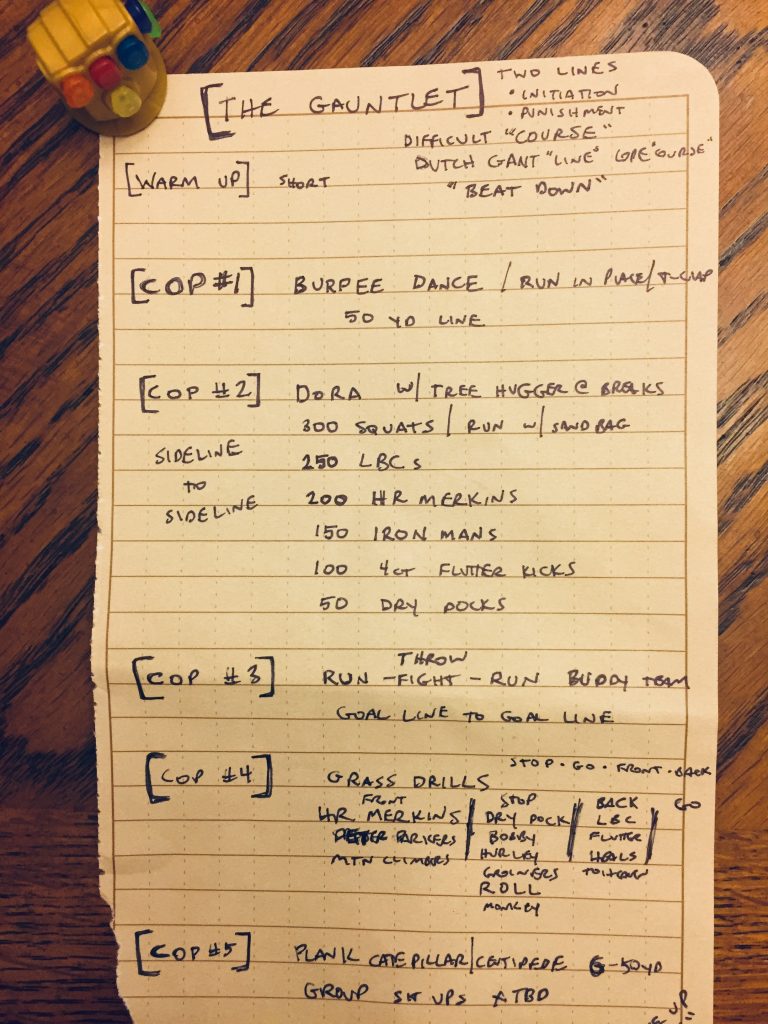 [THE GAUNTLET]
TWO LINES
• INITIATION
• PUNISHMENT
DIFFICULT "COURSE"
DUTCH GANT "LINE" LOPE "OURSE"
"BEAT DOWN"
[WARM UP] SHORT
[COP #1] BURPEE DANCE / RUN IN PLACE /
50 YD LINE
[COP #2] DORA W/ TREE HUGGER @ BREAKS
300 SQUATS / RUN W/ SANDBAG
SIDELINE TO SIDELINE
250 LBCs
200 HR MERKINS
150 IRON MANS
100 4CT FLUTTER KICKS
50 DRY DOCKS
THROW
[COP #3] RUN - FIGHT - RUN BUDDY TEAM
GOAL LINE TO GOAL LINE
STOP • GO • FRONT • BACK
[COP #4] GRASS DRILLS
FRONT
HR MERKINS
PETER PARKERS
MTN CLIMBERS
STOP
DRY DOCK
BOBBY
HURLEY
GROINERS
ROLL
MONKEY
BACK
LBC
FLUTTER
HEALS
TO HEAVEN
GO
[COP #5] PLANK CATEPILLAR/CENTIPEDE 6-50YD
GROUP SIT UPS ATBD
UP"